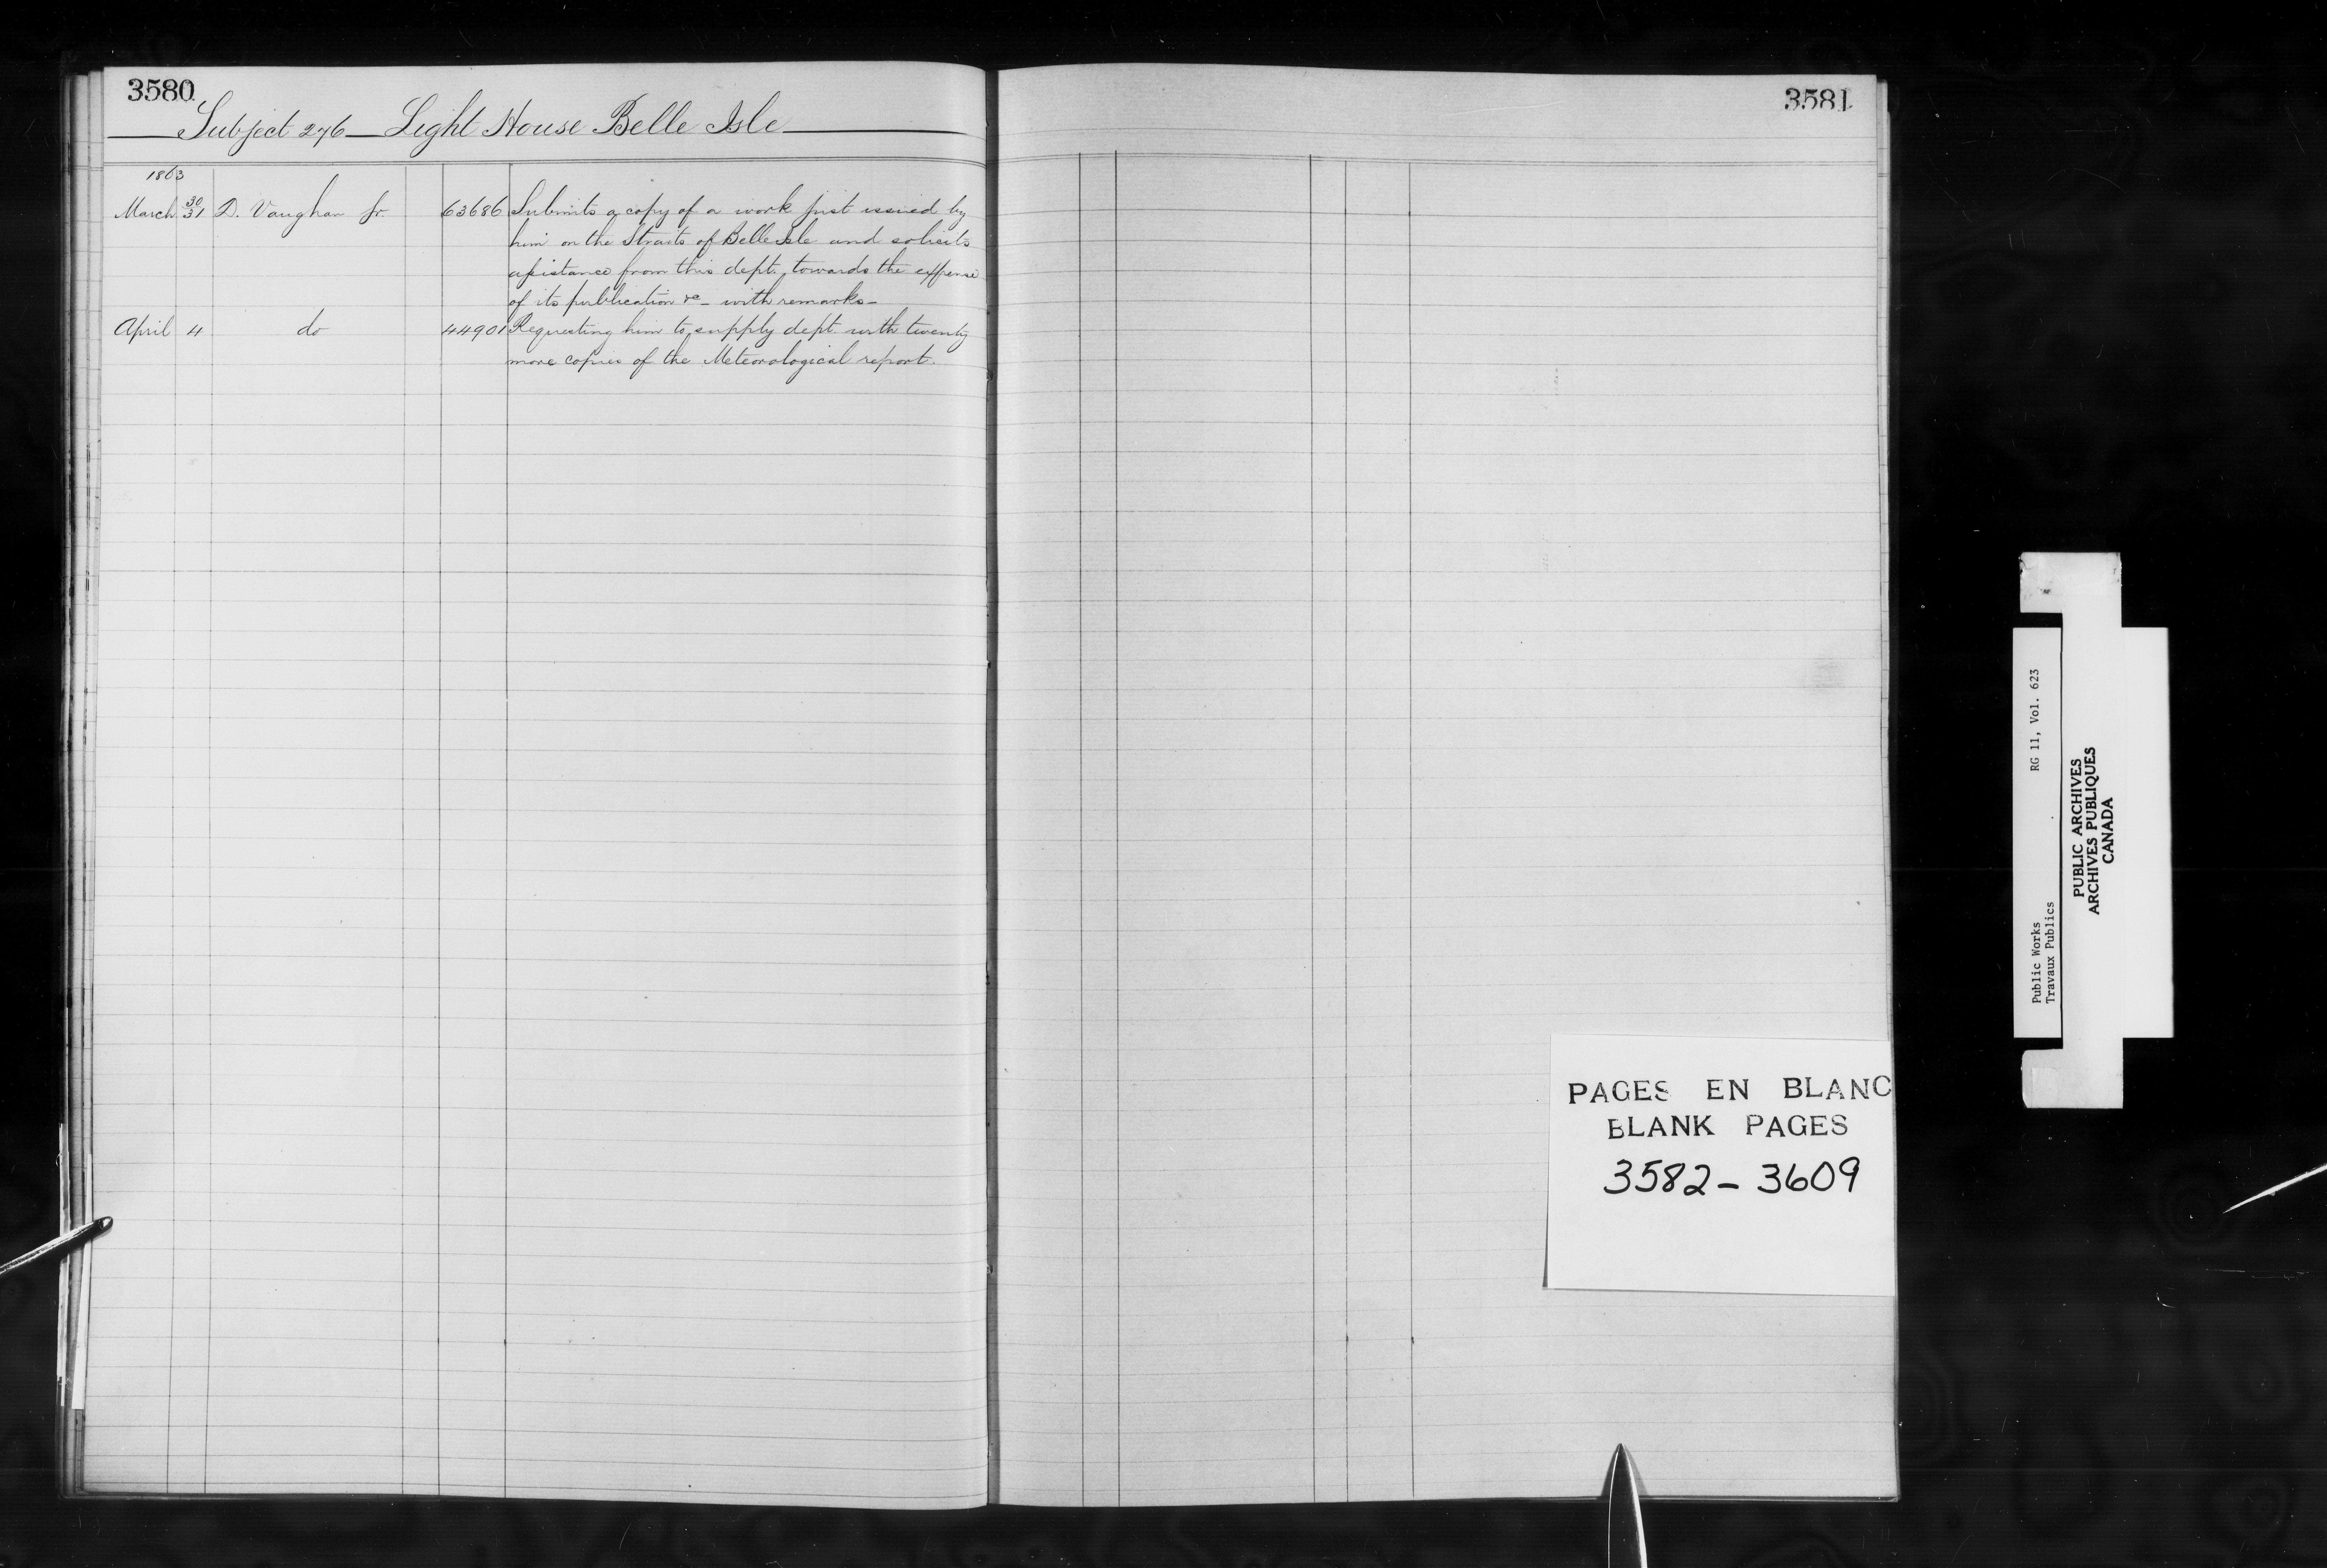 3580
Subject 276 Light House Belle Isle
1863
March 30/31 D. Vaughan Jr. 63686 Submits a copy of a work just issued by
him on the Straits of Belle Isle and solicits
assistance from this dept. towards the expense
of its publication &c – with remarks –
April 4 do 44901 Requesting him to supply dept. with twenty
more copies of the Meteorological report.
3581
PAGES EN BLANC
BLANK PAGES
3582 – 3609
Public Works RG 11, Vol. 623
Travaux Publics
PUBLIC ARCHIVES
ARCHIVES PUBLIQUES
CANADA